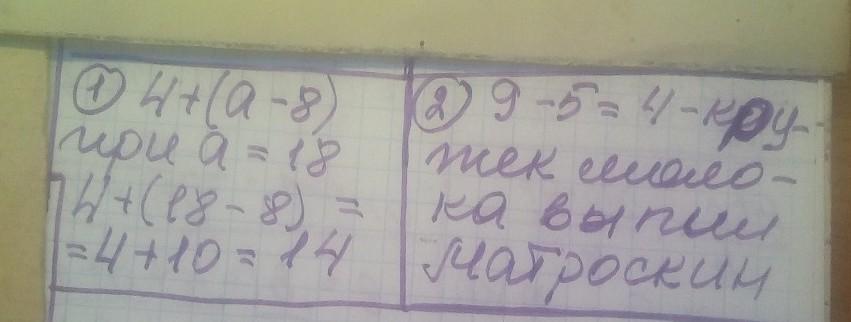 ① 4+(а-8)
при а = 18
4+(18-8) =
=4+10=14
② 9-5=4-кру-
жек моло-
ка выпил
Матроскин